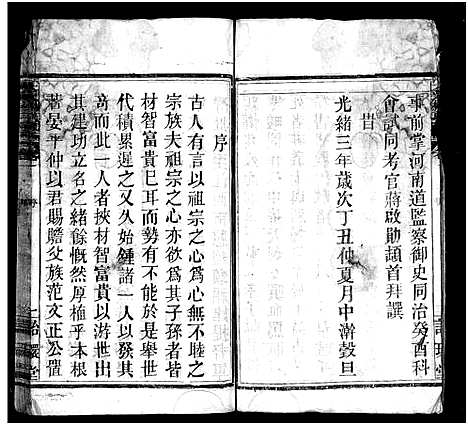 事前掌河南道監察御史同治癸酉科
會試同考官蔣啟勛頴首拜譔
昔
光緒三年歲次丁丑仲夏月中澣穀旦
序
古人有言以祖宗之心爲心無不睦之
宗族夫祖宗之心亦欲爲其子孫者皆
材智富貴已耳而勢有不能於是舉世
代積累遲之又久始鍾諸一人以發其
奇而此一人者挾材智富貴以游世出
其建功立名之緒餘慨然厚植乎本根
昔晏平仲以君賜贍父族范文正公置